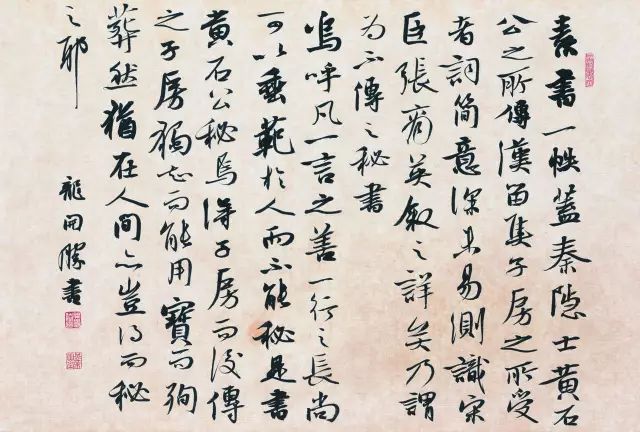 素書一帙蓋秦隐士黄石
公之所傳漢留侯子房之所受
者詞简意深未易測識宋
臣張商英叙之詳矣乃謂
为不傳之秘書
嗚呼凡一言之善一行之長尚
可以垂範於人而不能秘是書
黄石公秘焉得子房而後傳
之子房獨知而能用寶而殉
葬然猶在人間亦豈得而秘
之耶
龍開勝書